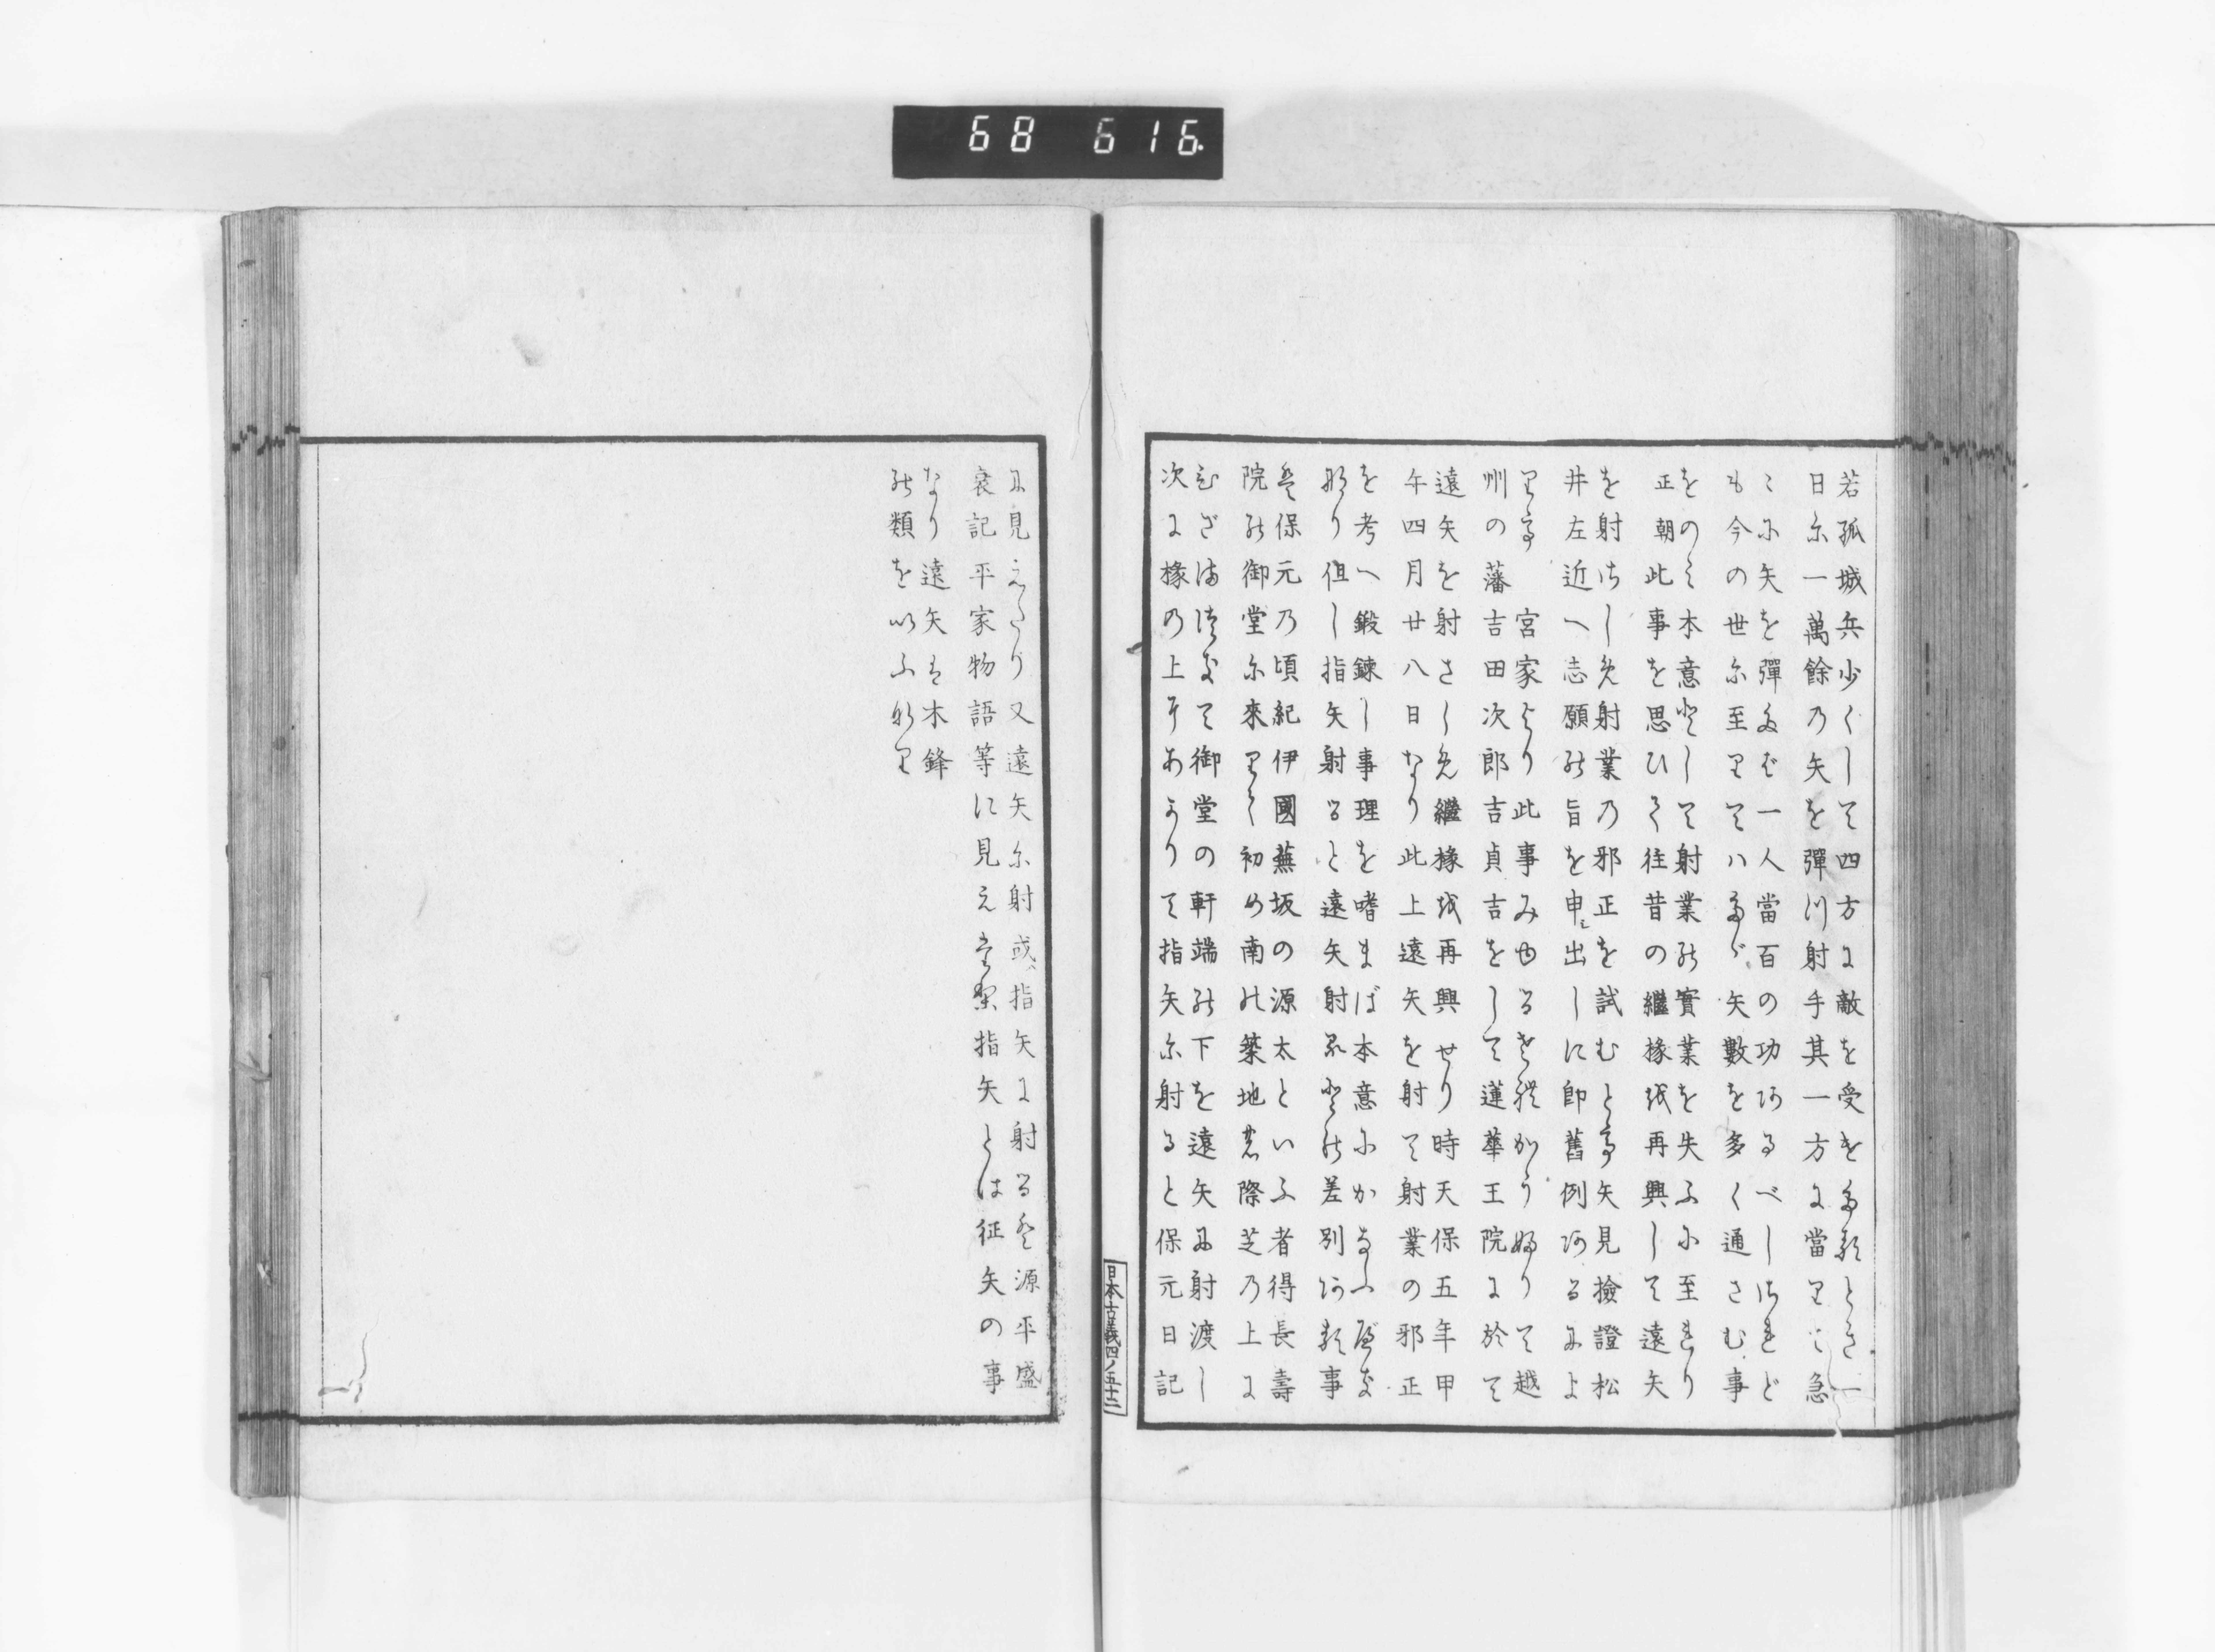 68 616
若孤城兵少くして四方に敵を受をたるとき一
日に一萬餘の矢を彈つ射手其一方に當りて急
こに矢を彈たば一人當百の功あるべしされど
も今の世に至りてハたゞ矢數を多く通さむ事
をのみ本意として射業の實業を失ふに至れり
正朝此事を思ひて往昔の繼椽を再興して遠矢
を射さしめ射業の邪正を試むと矢見撿證松
井左近へ志願の旨を申シ出しに即舊例あるによ
り 宮家より此事みゆるされかうふりて越
州の藩吉田次郎吉貞吉をして蓮華王院に於て
遠矢を射さしめ繼椽を再興せり時天保五年甲
午四月廿八日なり此上遠矢を射て射業の邪正
を考へ鍛鍊し事理を嗜まば本意にかなふべき
なり但し指矢射ると遠矢射るとの差別ある事
は保元の頃紀伊國蕪坂の源太といふ者得長壽
院の御堂に來りて初め南の築地の際芝の上に
ひざまづきて御堂の軒端の下を遠矢に射渡し
次に椽の上にあかりて指矢に射ると保元日記
日本古義四ノ五十二
に見えたり又遠矢に射或ハ指矢に射るは源平盛
衰記平家物語等に見えたり指矢とは征矢の事
なり遠矢は木鋒
の類をいふなり